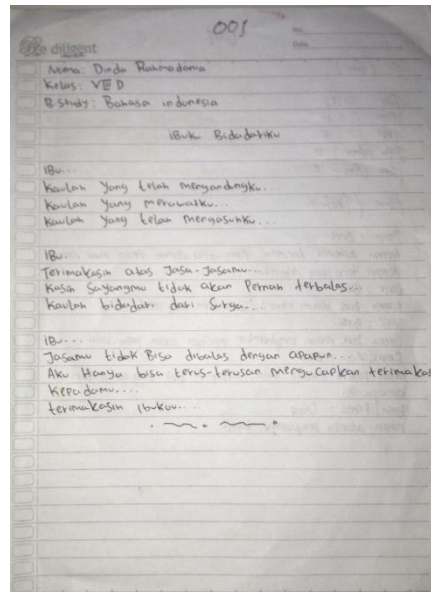 001
No.
Date.
Be diligent
Nama: Dinda Rahmadania
Kelas: VIII D
B. Study: Bahasa indonesia
iBuk Bidadariku
iBu...
Kaulah Yang telah mengandungku...
Kaulah Yang merawatku...
Kaulah Yang telah mengasuhku...
iBu...
Terimakasih atas Jasa-Jasamu...
Kasih Sayangmu tidak akan Pernah terbalas...
Kaulah bidadari dari Surga...
iBu...
Jasamu tidak Bisa dibalas dengan apapun...
Aku Hanya bisa terus-terusan mengucapkan terimakas
Kepadamu....
terimakasih ibukuu....